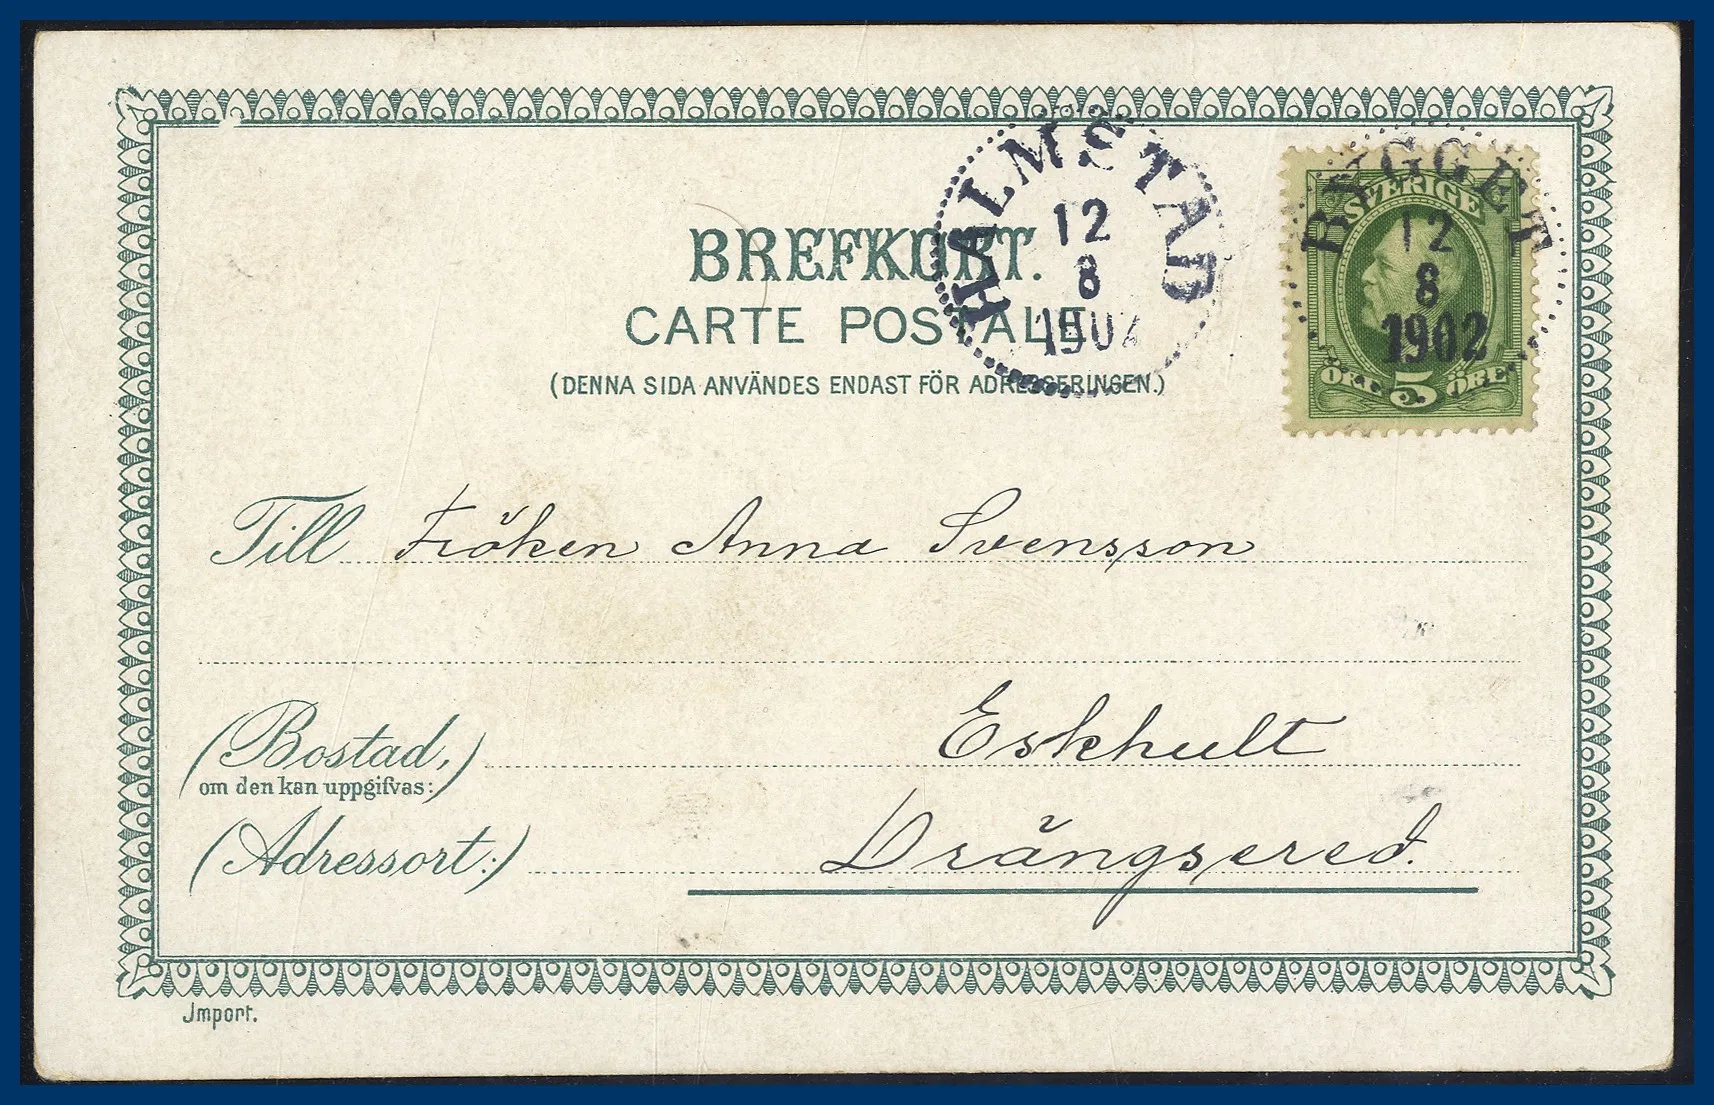 BREFKORT.
CARTE POSTALE
(DENNA SIDA ANVÄNDES ENDAST FÖR ADRESSERINGEN.)
HALMSTAD
12
8
1902
BYGGET
12
8
1902
SVERIGE
ÖRE 5 ÖRE
Till Fröken Anna Svensson
(Bostad,) Eskhult
om den kan uppgifvas:
(Adressort:) Drängsered.
Import.